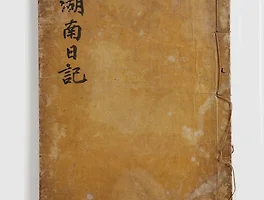 湖南日記